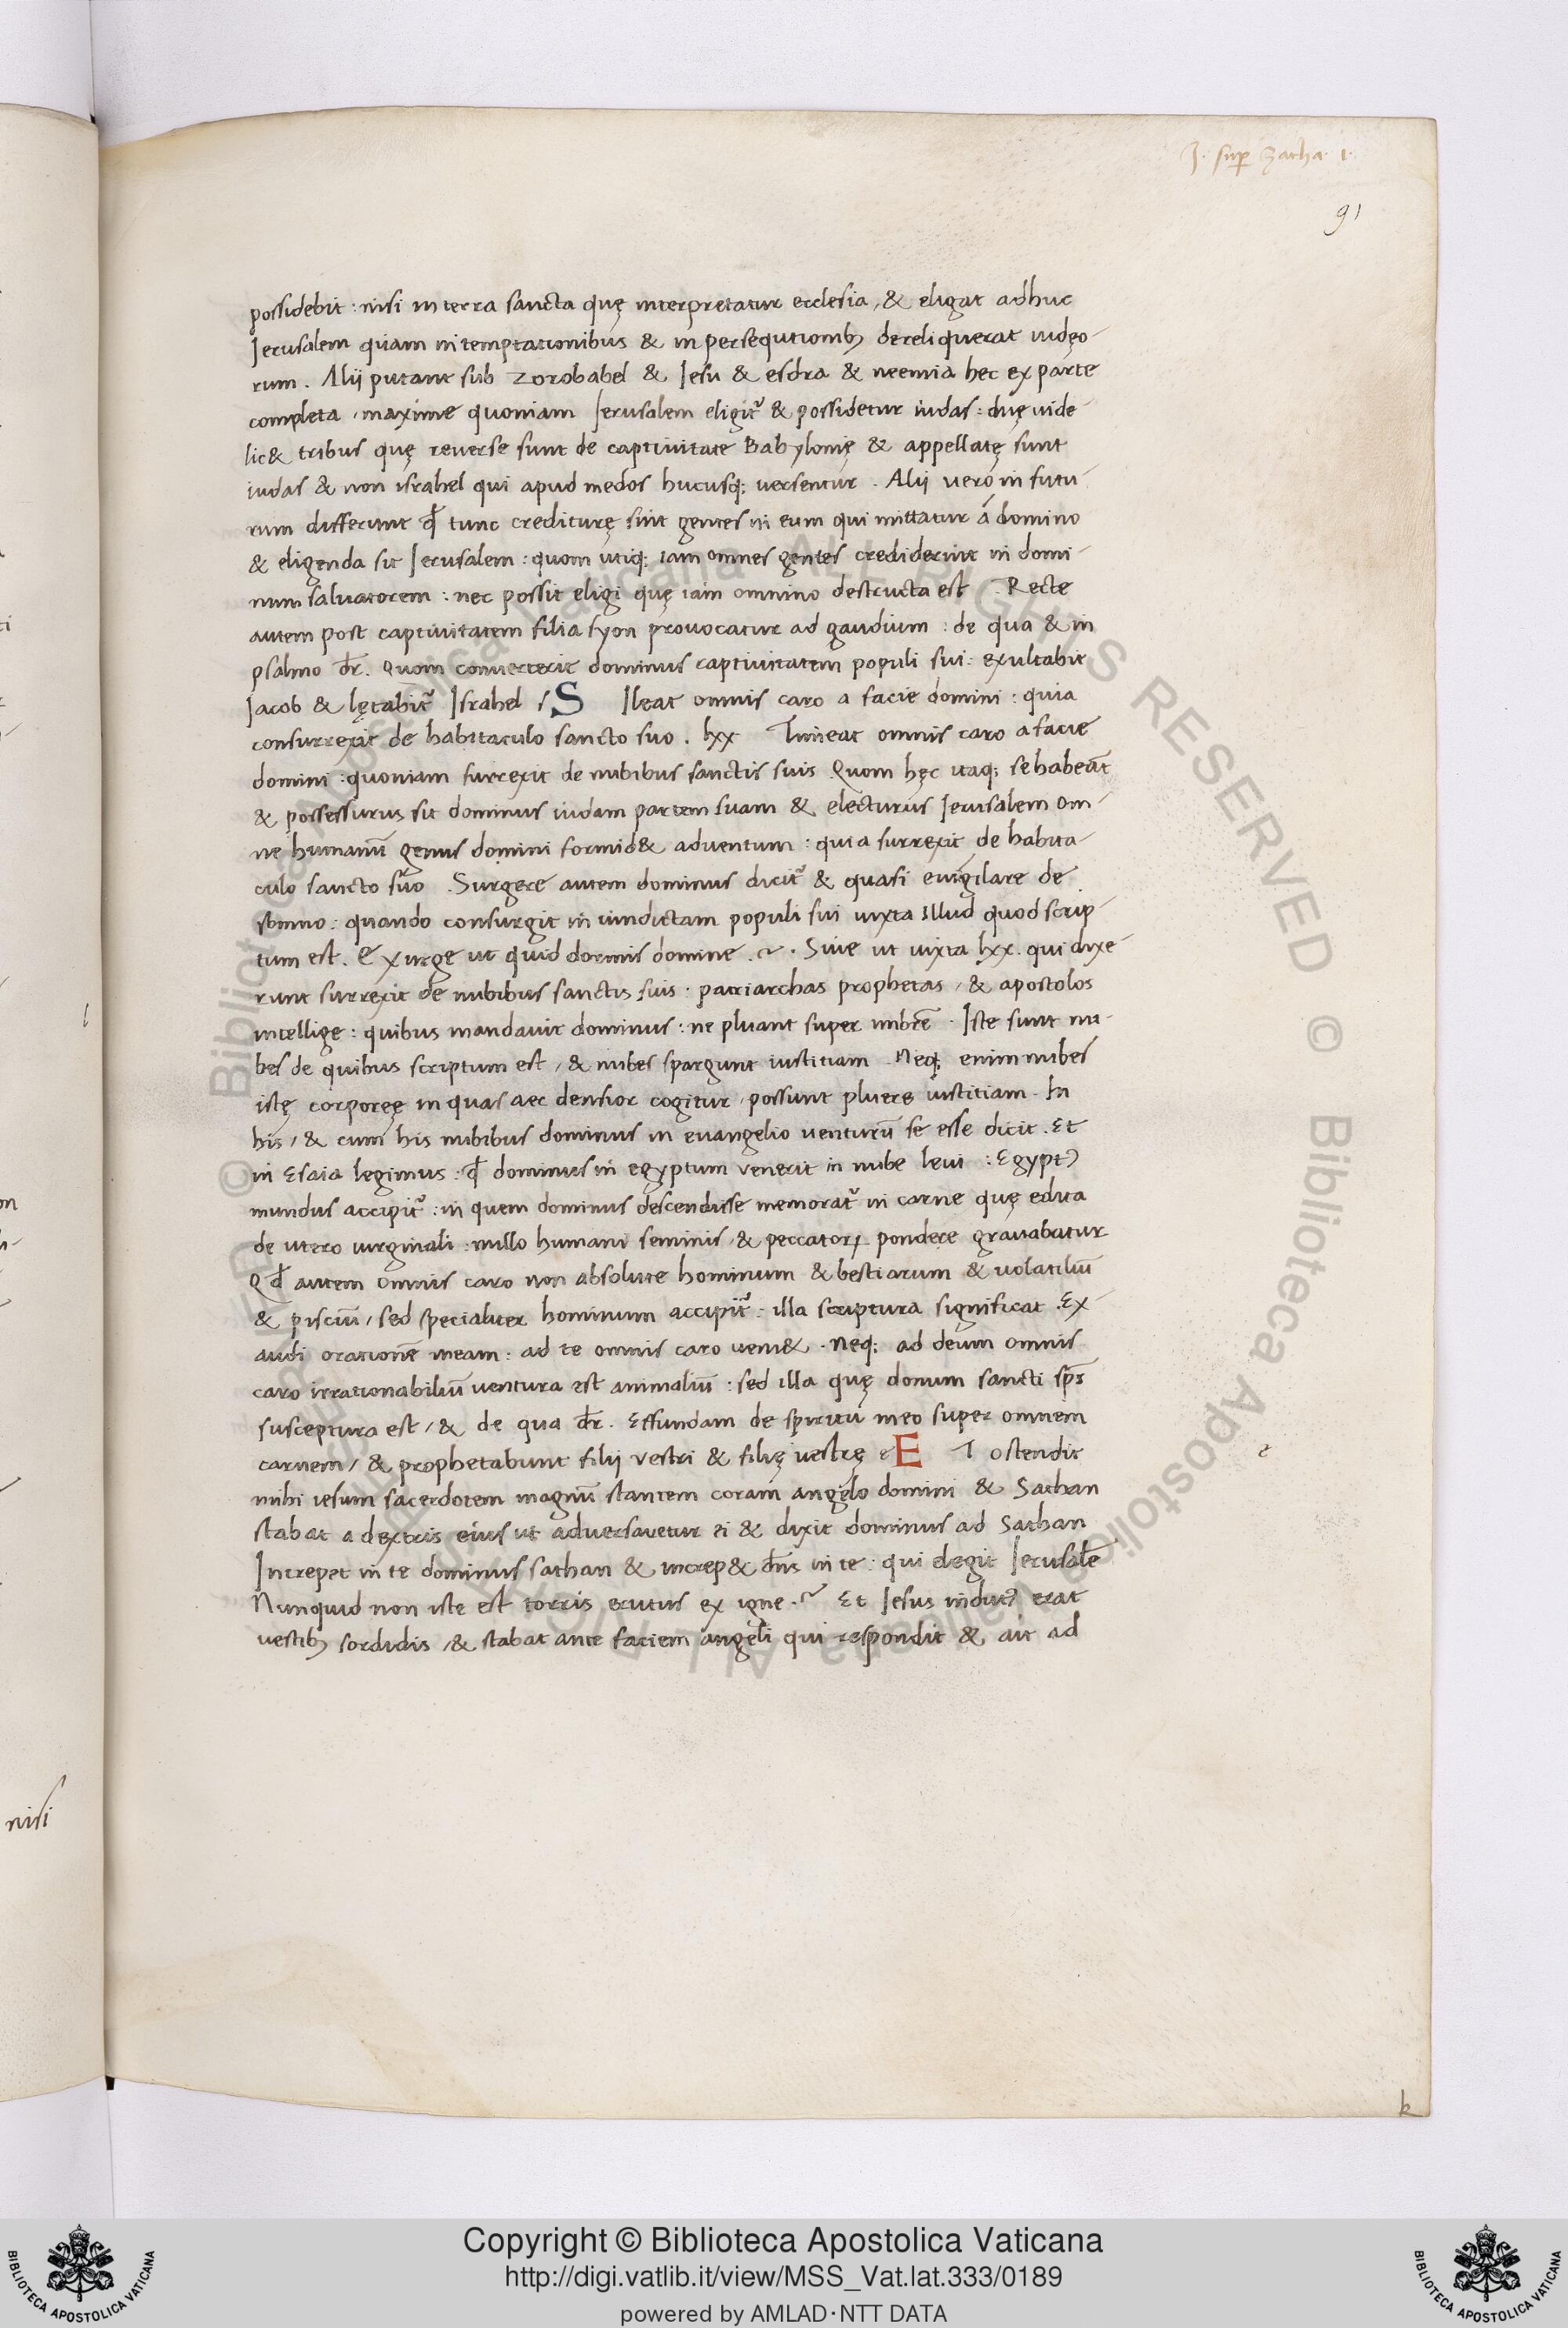 J. sup Zacha. 1.
91
possidebit : nisi in terra sancta quę interpretatur ecclesia, & eligat adhuc
Jerusalem quam in temptationibus & in persequtionib; dereliquerat iudęo-
rum. Alij putant sub zorobabel & Jesu & esdra & neemia hec ex parte
completa, maxime quoniam Jerusalem eligit᷑ & possidetur iudas : duę uide
lic& tribus quę reverse sunt de captiuitate Babylonię & appellatę sunt
iudas & non israhel qui apud medos hucusq; uersentur. Alij uero in futu
rum differunt qd̄ tunc crediturę sint gentes in eum qui mittatur á domino
& eligenda sit Jerusalem : quom utiq; iam omnes gentes crediderint in domi-
num saluatorem : nec possit eligi quę iam omnino destructa est. Recte
autem post captiuitatem filia syon provocatur ad gaudium : de qua & in
psalmo dr̄. Quom converterit dominus captiuitatem populi sui : exultabit
Jacob & lętabit᷑ Israhel s S Ileat omnis caro a facie domini : quia
consurrexit de habitaculo sancto suo. lxx Timeat omnis caro a facie
domini : quoniam surrexit de nubibus sanctis suis Quom hęc itaq; se habeāt
& possessurus sit dominus iudam partem suam & electurus Jerusalem om-
ne humanū genus domini formid& adventum : quia surrexit de habita-
culo sancto suo. Surgere autem dominus dicit᷑ & quasi euigilare de
somno : quando consurgit in uindictam populi sui iuxta illud quod scrip-
tum est. Exurge ut quid dormis domine.~. Siue ut iuxta lxx. qui dixe-
runt surrexit de nubibus sanctis suis : patriarchas prophetas, & apostolos
intellige : quibus mandauit dominus : ne pluant super imbrē. Iste sunt nu-
bes de quibus scriptum est, & nubes spargunt iustitiam. Neq; enim nubes
istę corporeę in quas aer densior cogitur, possunt pluere iustitiam. In
his, & cum his nubibus dominus in evangelio venturū se esse dicit. Et
in Esaia legimus : qd̄ dominus in egyptum venerit in nube leui : Egypt⁹
mundus accipit᷑ : in quem dominus descendisse memorat᷑ in carne quę edita
de utero uirginali : nullo humani seminis, & peccatoꝝ pondere gravabatur
Qd̄ autem omnis caro non absolute hominum & bestiarum & uolatiliū
& pisciū, sed specialiter hominum accipit᷑ : illa scriptura significat. Ex-
audi orationē meam : ad te omnis caro veni&. Neq; ad deum omnis
caro irrationabiliū ventura est animaliū : sed illa quę donum sancti sps̄
susceptura est, & de qua dr̄. Effundam de spiritu meo super omnem
carnem, & prophetabunt filij vestri & filię vestrę e E T ostendit
mihi iesum sacerdotem magnū stantem coram angelo domini & Sathan
stabat a dextris eius ut adversaretur ei & dixit dominus ad Sathan
Increpet in te dominus sathan & increp& dn̄s in te : qui elegit Jerusalē
Nunquid non iste est torris erutus ex igne.~ Et Jesus indut⁹ erat
vestib; sordidis, & stabat ante faciem angeli qui respondit & ait ad
e
k
nisi
© Biblioteca Apostolica Vaticana ALL RIGHTS RESERVED
Copyright © Biblioteca Apostolica Vaticana
http://digi.vatlib.it/view/MSS_Vat.lat.333/0189
powered by AMLAD·NTT DATA
BIBLIOTECA APOSTOLICA VATICANA
BIBLIOTECA APOSTOLICA VATICANA